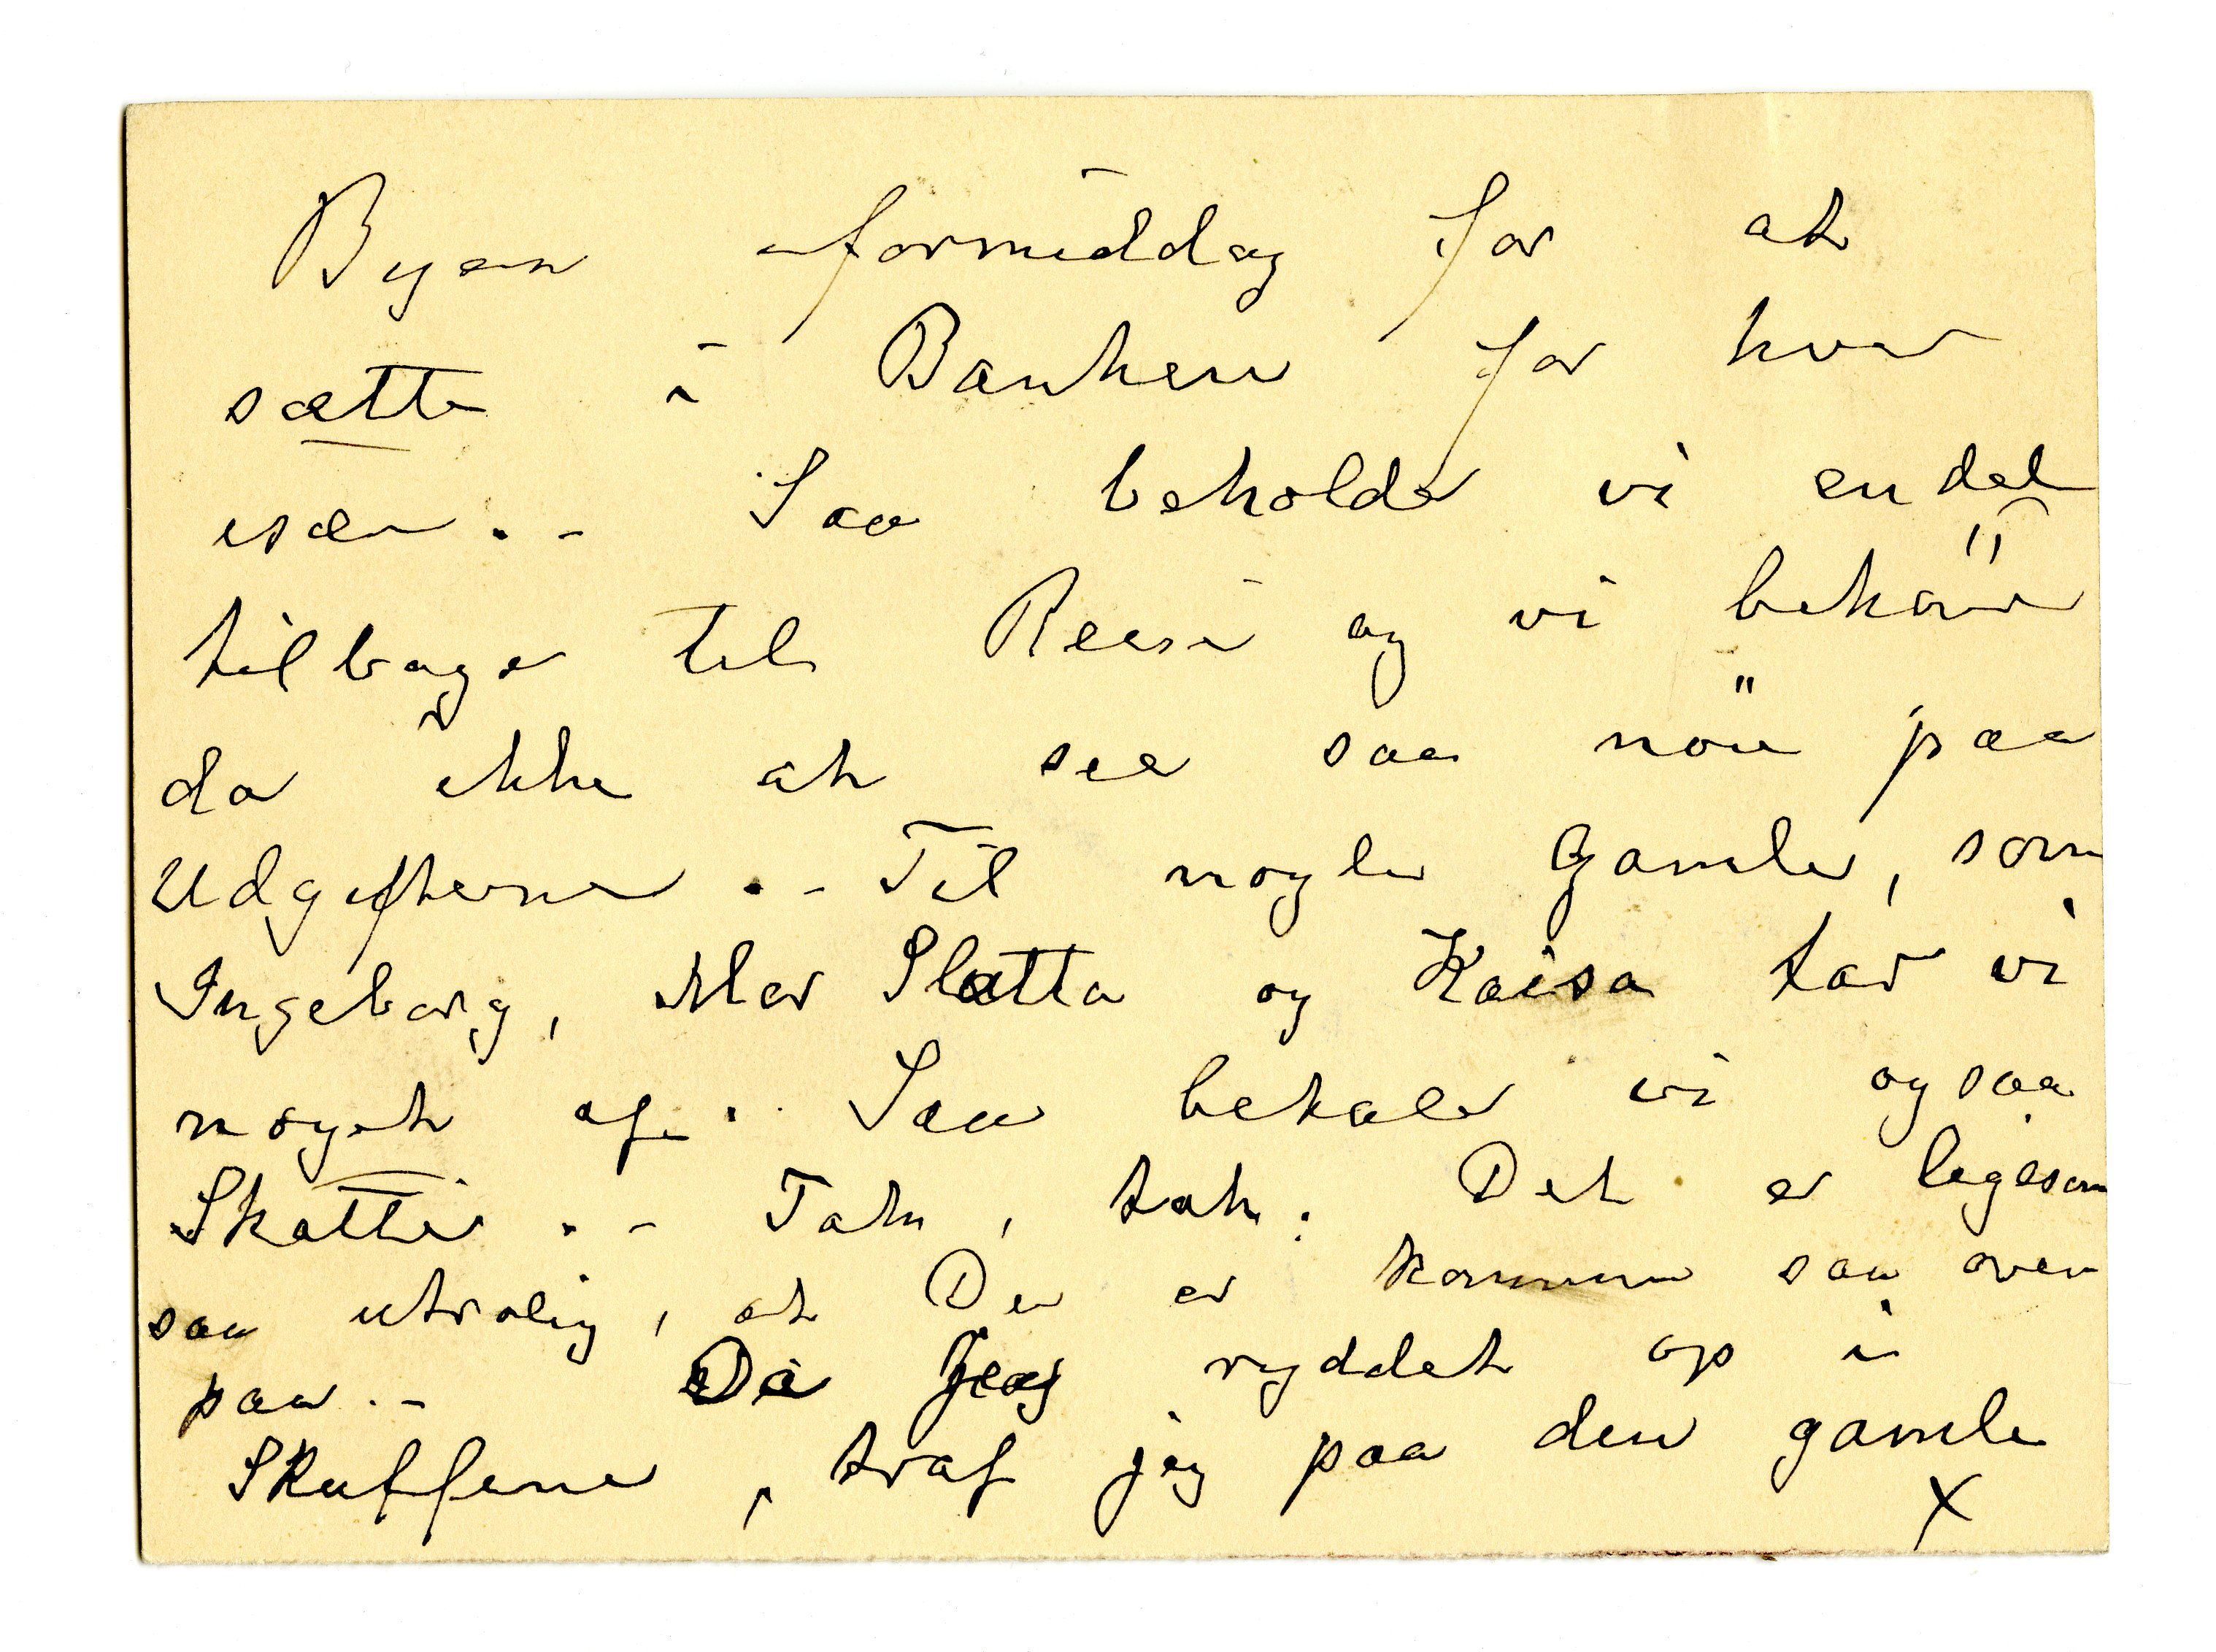 Byen iformiddag for at
sætte i Banken for hver
især. - Saa beholder vi endel
tilbage til Reise og vi behöver
da ikke at see saa nöie paa
Udgifterne. - Til nogle Gamle, som
Ingeborg, Mor Slætta og Kaisa tar vi
noget af. Saa betaler vi ogsaa
Skatter. - Tak, tak. Det er ligesom
saa utrolig, at Du er kommen saa oven
paa. - Da jeg ryddet op i
Skuffene, traf jeg paa den gamle
X